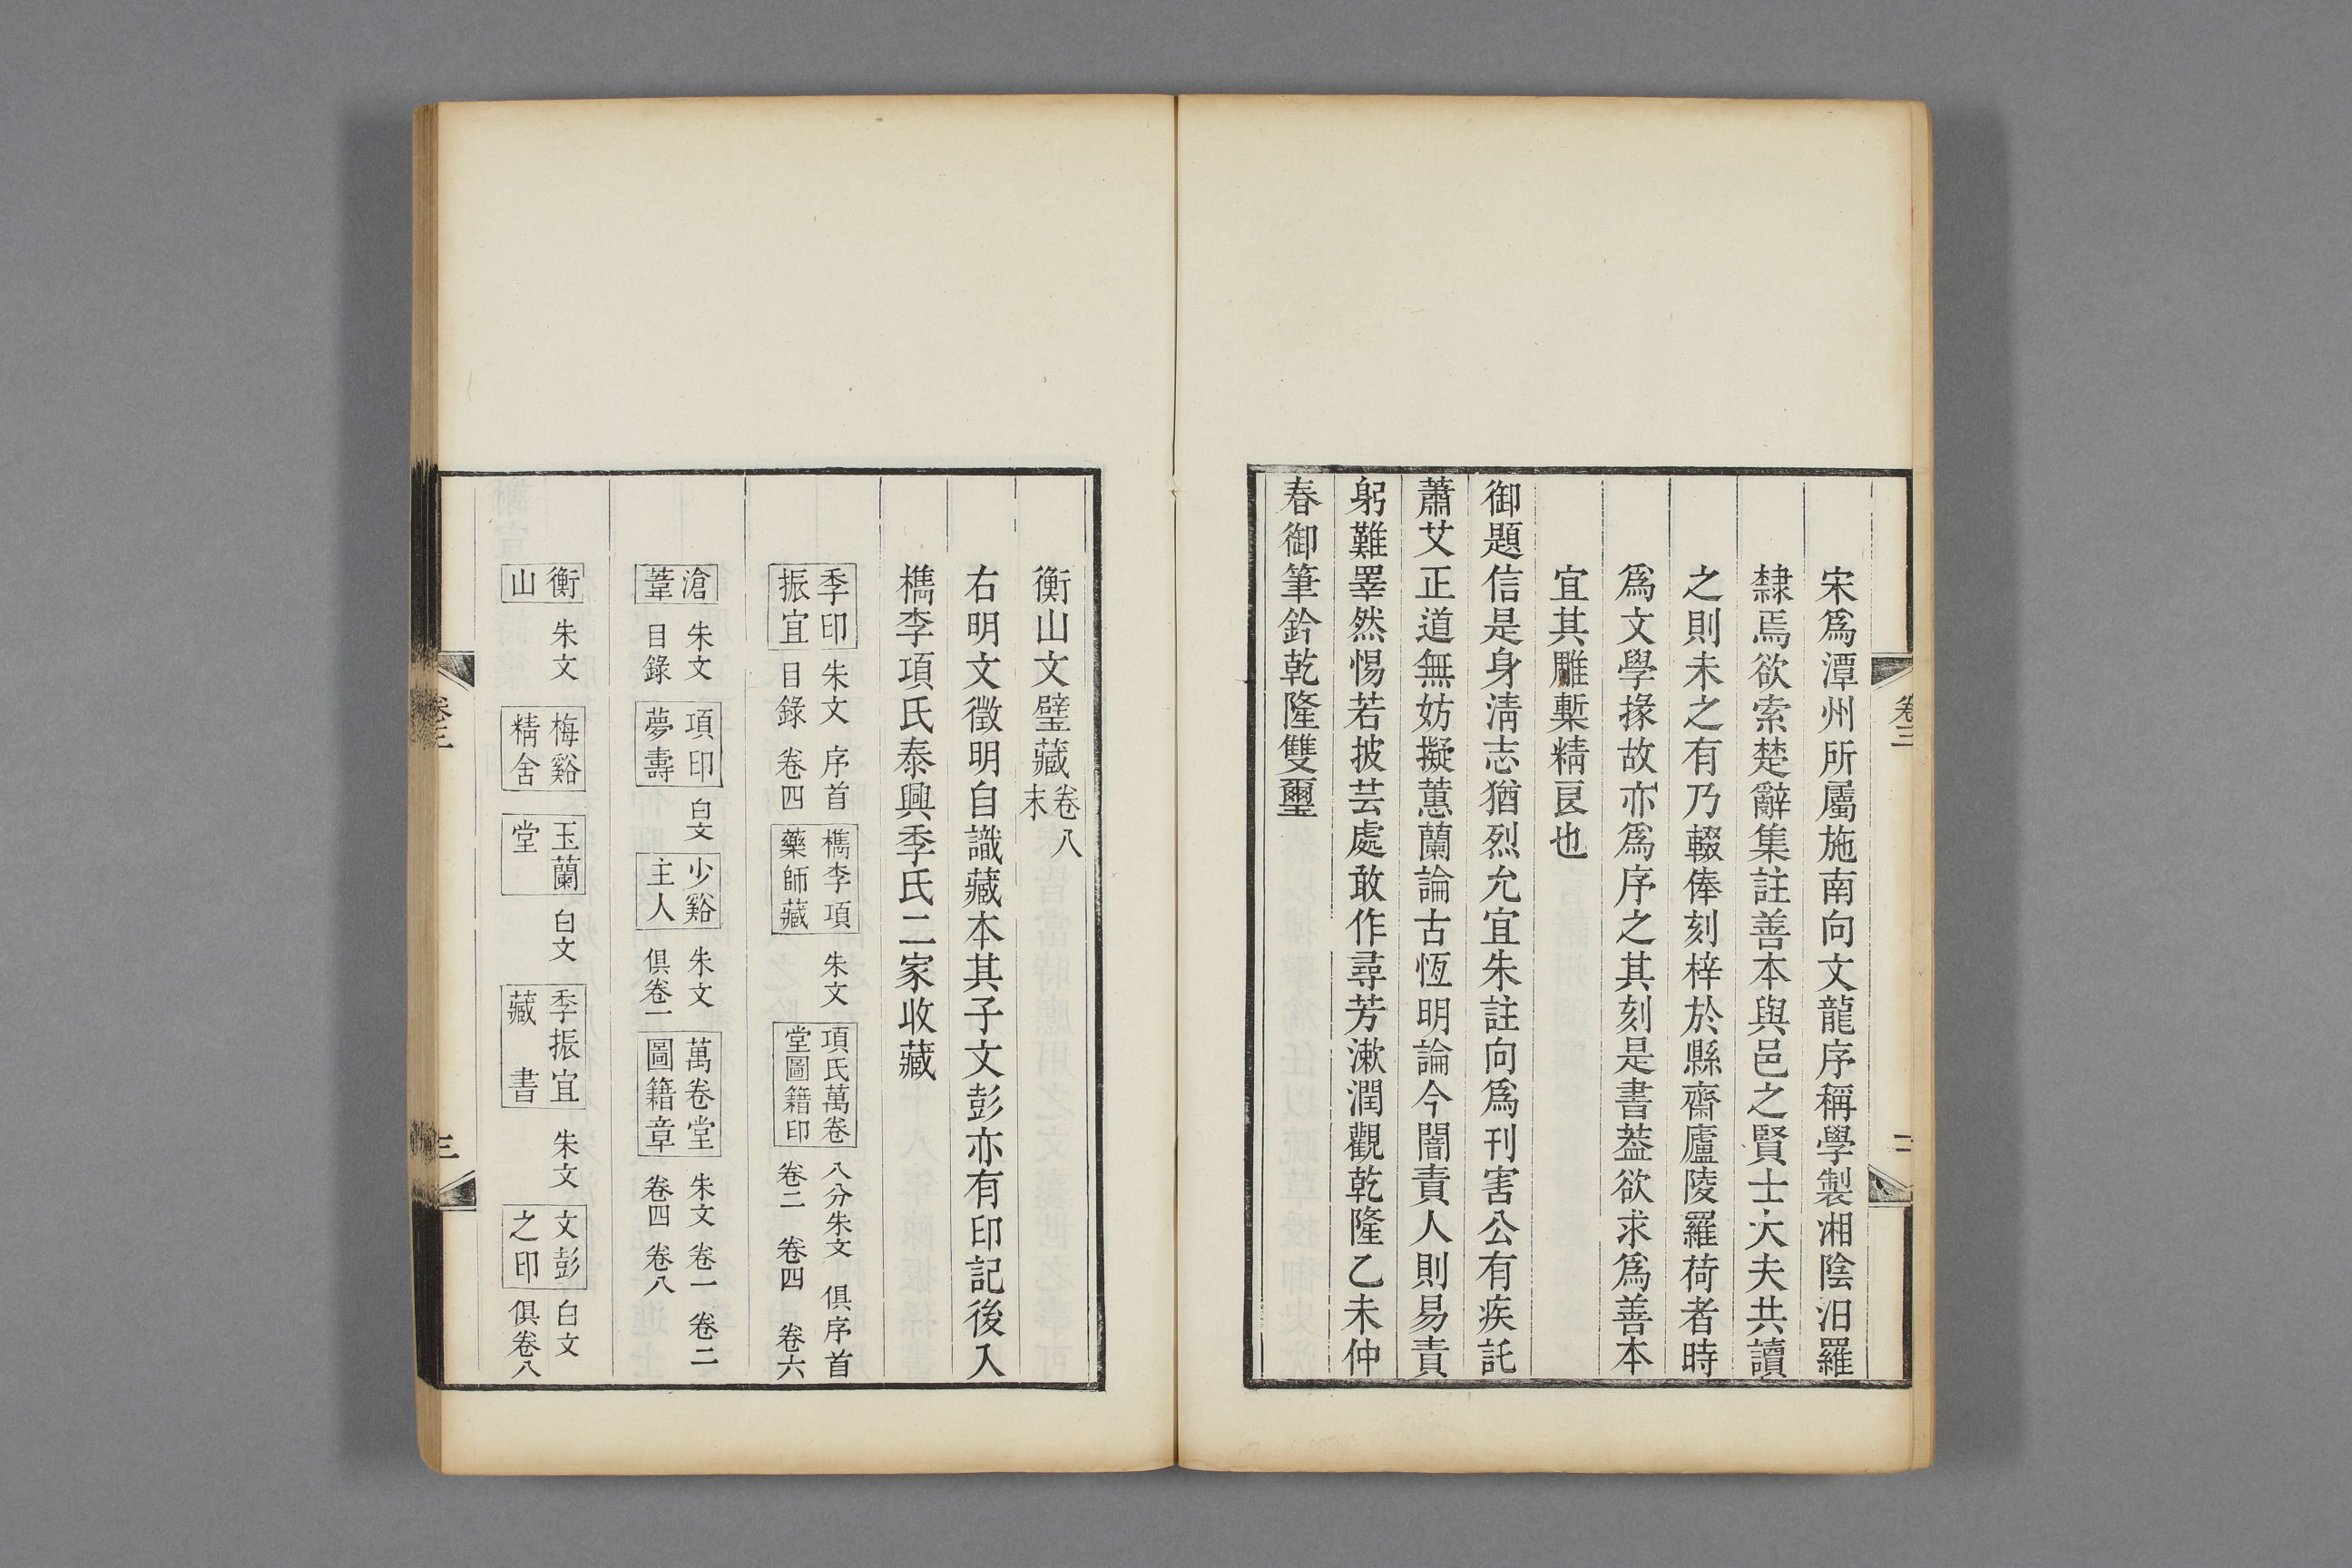 宋爲潭州所屬施南向文龍序稱學製湘陰汨羅
隸焉欲索楚辭集註善本與邑之賢士大夫共讀
之則未之有乃輟俸刻梓於縣齋廬陵羅荷者時
爲文學掾故亦爲序之其刻是書葢欲求爲善本
宜其雕槧精良也
御題信是身淸志猶烈允宜朱註向爲刊害公有疾託
蕭艾正道無妨擬蕙蘭論古恆明論今闇責人則易責
躬難睪然惕若披芸處敢作尋芳漱潤觀乾隆乙未仲
春御筆鈐乾隆雙璽
卷三
二
衡山文璧藏卷八末
右明文徵明自識藏本其子文彭亦有印記後入
檇李項氏泰興季氏二家收藏
季印振宜 朱文 序首 目錄 卷四 檇李項藥師藏 朱文 項氏萬卷堂圖籍印 八分朱文 俱序首 卷二 卷四 卷六
滄葦 朱文 目錄 項印夢壽 白文 少谿主人 朱文 俱卷一 萬卷堂圖籍章 朱文 卷一 卷二 卷四 卷八
衡山 朱文 梅谿精舍 玉蘭堂 白文 季振宜藏書 朱文 文彭之印 白文 俱卷八
卷三
三